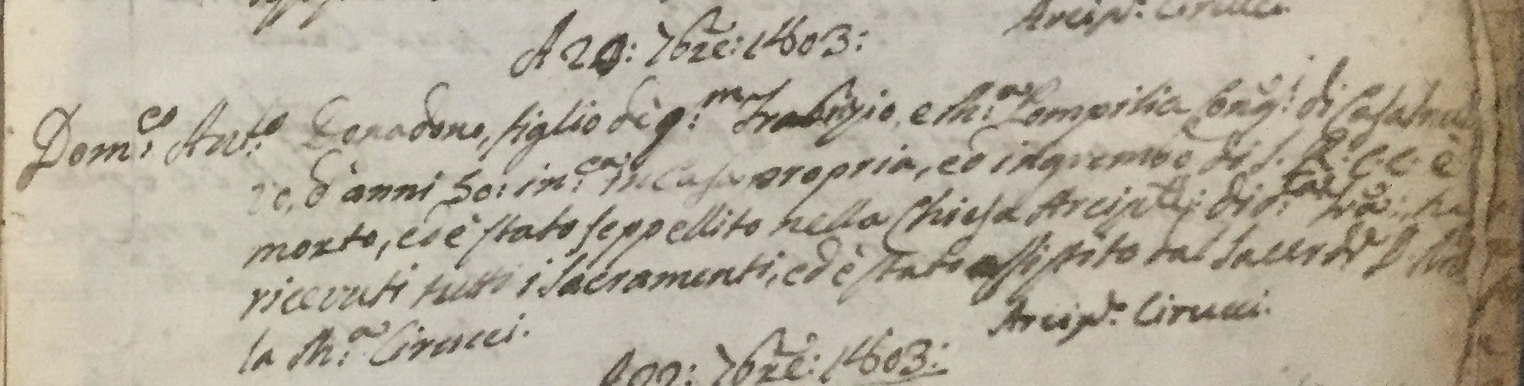 Arcip.e Cirucci.
A 20: 7bre: 1803:
Dom:co Ant:o Donadono, figlio di q:m Fabrizio, e M:a Pompilia Conug:i di Casalnuo
vo, d'anni 50: in c:a in casa propria, ed in grembo di S. R. C. C. è
morto, ed è stato seppellito nella Chiesa Arcip.le di d:a Trã: ha
ricevuti tutti i Sacramenti, ed è stato assistito dal Sacerd.e D.
la M:a Cirucci.
Arcip.e Cirucci.
A 22: 7bre: 1803: